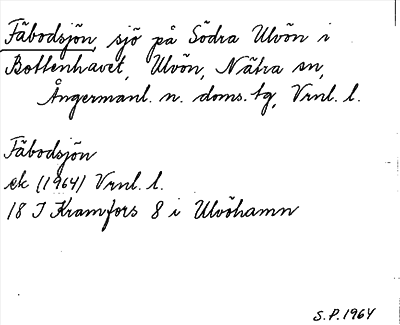 Fäbodsjön, sjö på Södra Ulvön i
Bottenhavet, Ulvön, Nätra sn,
Ångermanl. n. doms. tg, Vrnl. l.
Fäbodsjön
ek (1964) Vrnl. l.
18 I Kramfors 8 i Ulvöhamn
S.P. 1964